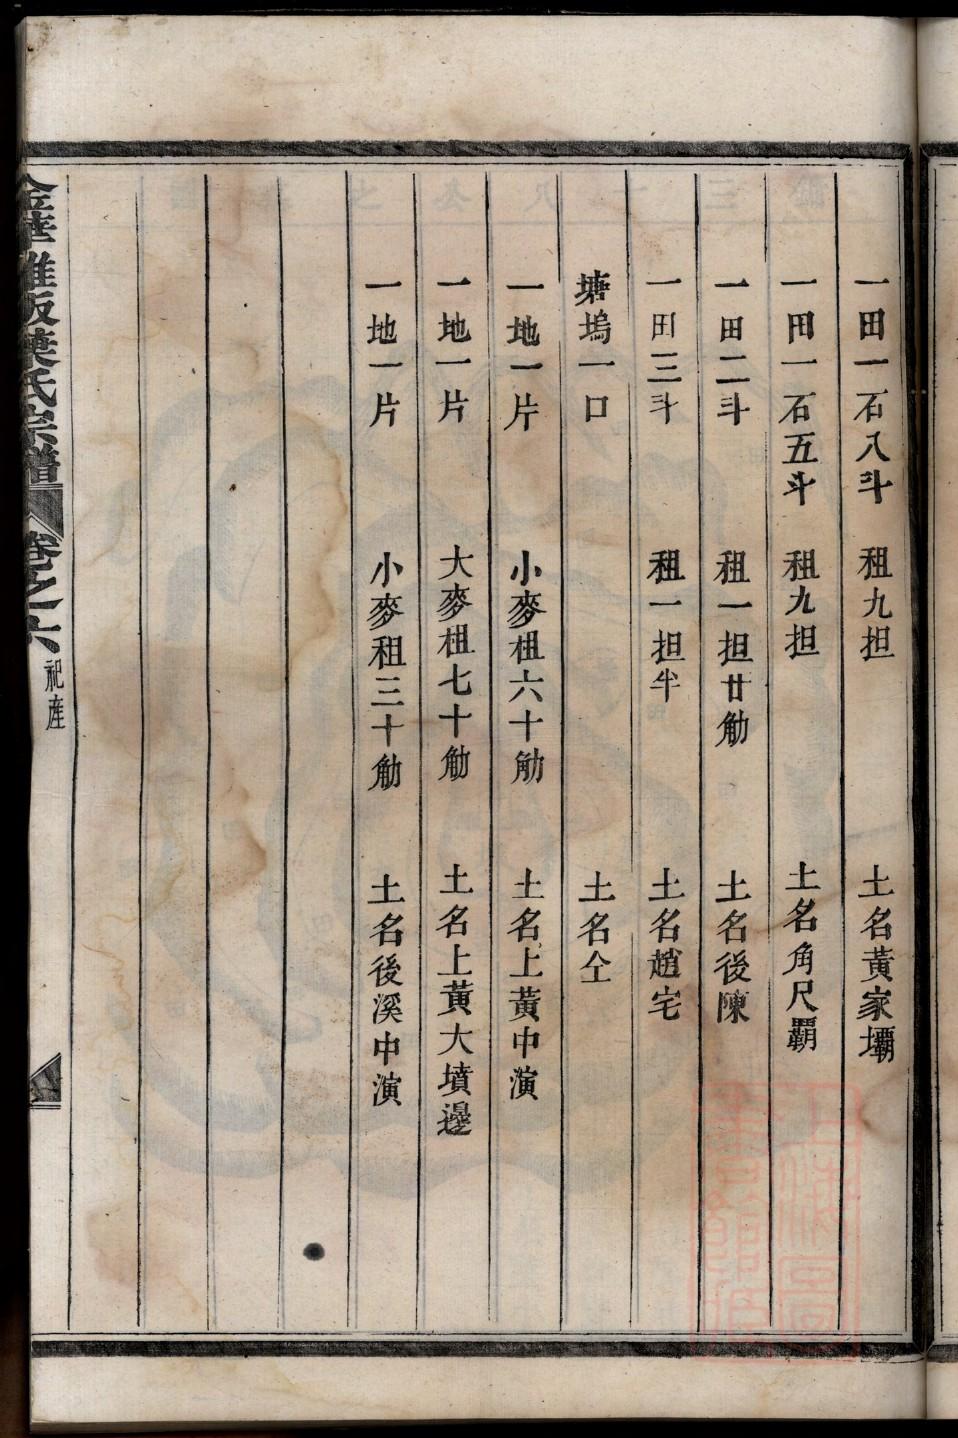 一田一石八斗 租九担 土名黃家壩
一田一石五斗 租九担 土名角尺覇
一田二斗 租一担廿觔 土名後陳
一田三斗 租一担半 土名趙宅
塘塢一口 土名仝
一地一片 小麥租六十觔 土名上黃中演
一地一片 大麥租七十觔 土名上黃大墳邊
一地一片 小麥租三十觔 土名後溪中演
金華 氏宗譜 卷之六 祀産